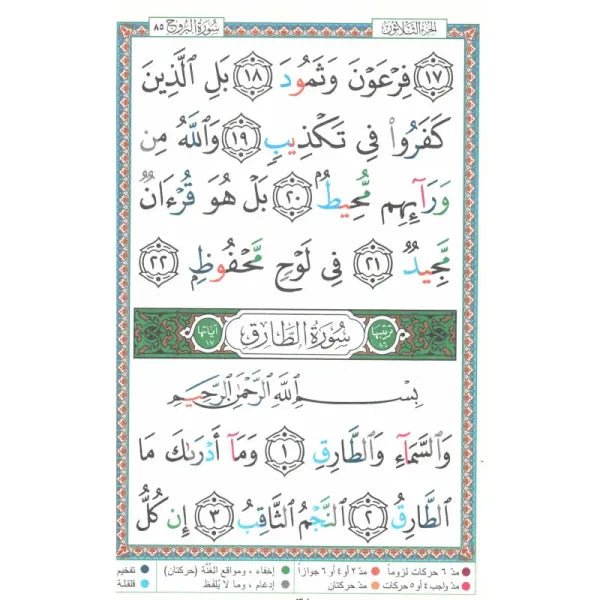 الجزء الثلاثون سورة البروج ٨٥
١٧ فِرْعَوْنَ وَثَمُودَ ١٨ بَلِ الَّذِينَ
كَفَرُوا۟ فِى تَكْذِيبٍ ١٩ وَٱللَّهُ مِن
وَرَآئِهِم مُّحِيطٌۢ ٢٠ بَلْ هُوَ قُرْءَانٌ
مَّجِيدٌ ٢١ فِى لَوْحٍ مَّحْفُوظٍۭ ٢٢
ترتيبها ٨٦ سُورَةُ الطَّارِقِ آياتها ١٧
بِسْمِ ٱللَّهِ ٱلرَّحْمَٰنِ ٱلرَّحِيمِ
وَٱلسَّمَآءِ وَٱلطَّارِقِ ١ وَمَآ أَدْرَىٰكَ مَا
ٱلطَّارِقُ ٢ ٱلنَّجْمُ ٱلثَّاقِبُ ٣ إِن كُلُّ
مدّ ٦ حركات لزوماً مدّ ٢ أو ٤ أو ٦ جوازاً إخفاء، ومواقع الغُنَّة (حركتان) تفخيم
مدّ واجب ٤ أو ٥ حركات مدّ حركتان إدغام، وما لا يُلفظ قلقلة